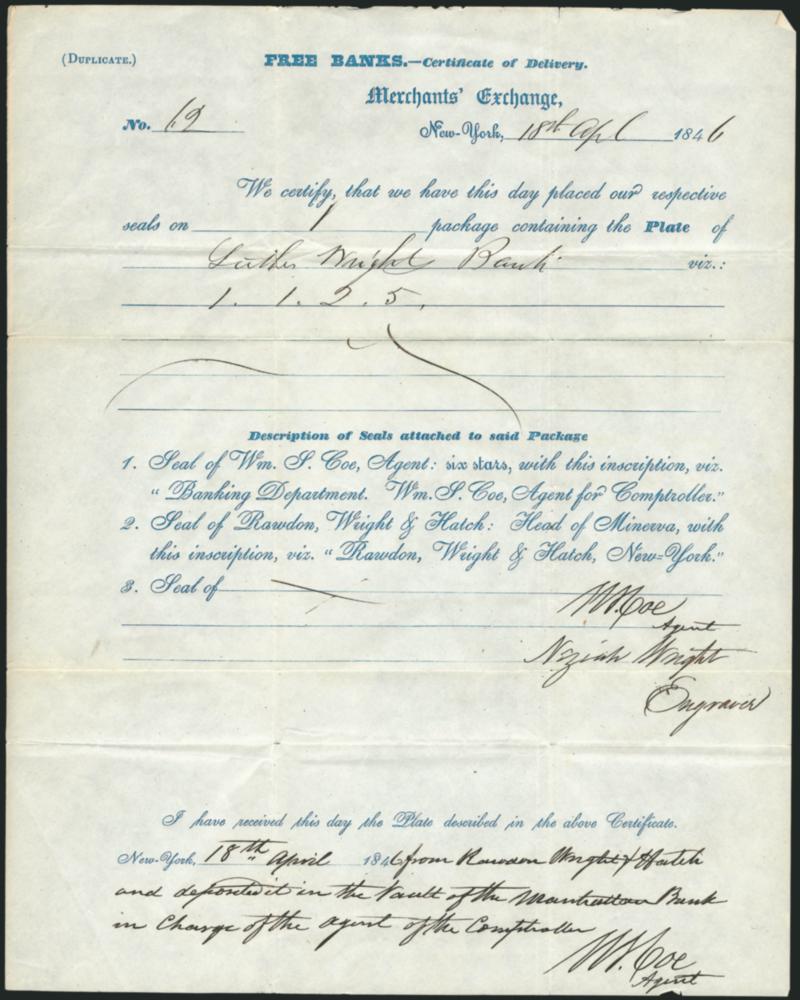 (DUPLICATE.)
FREE BANKS.—Certificate of Delivery.
Merchants' Exchange,
No. 19
New-York, 18th Apl 1846
We certify, that we have this day placed our respective
seals on 1 package containing the Plate of
Luther Wright Bank viz.:
1. 1. 2. 5.
Description of Seals attached to said Package
1. Seal of Wm. S. Coe, Agent: six stars, with this inscription, viz.
"Banking Department. Wm. S. Coe, Agent for Comptroller."
2. Seal of Rawdon, Wright & Hatch: Head of Minerva, with
this inscription, viz. "Rawdon, Wright & Hatch, New-York."
3. Seal of
W. S. Coe
Agent
Neziah Wright
Engraver
I have received this day the Plate described in the above Certificate.
New-York, 18th April 1846 from Rawdon Wright & Hatch
and deposited it in the Vault of the Manhattan Bank
in Charge of the agent of the Comptroller
W. S. Coe
Agent